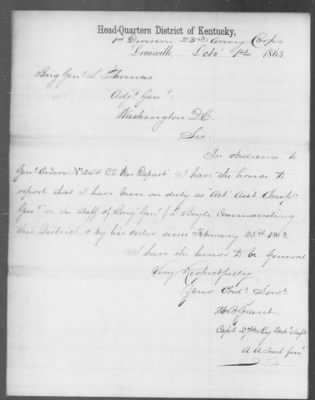 Head-Quarters District of Kentucky,
1st Division 23rd Army Corps
Louisville, Octo 1st 1863.
Brig Genl L Thomas
Adjt Genl
Washington D.C.
Sir
In obedience to
Genl Orders No 244 War Depart I have the honor to
report that I have been on duty as Act Asst Insp
Genl on the staff of Brig Genl J T Boyle Commanding
this District, & by his order since February 28th 1863
I have the honor to be General
Very Respectfully
Your Obdt Servt
Grant
Capt 27th Ky Inft
A A Inspt Genl